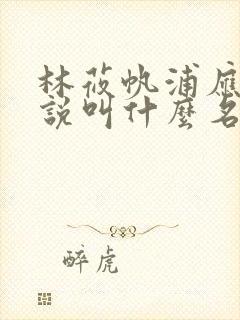 林莜帆浦應
說叫什麼名
醉虎